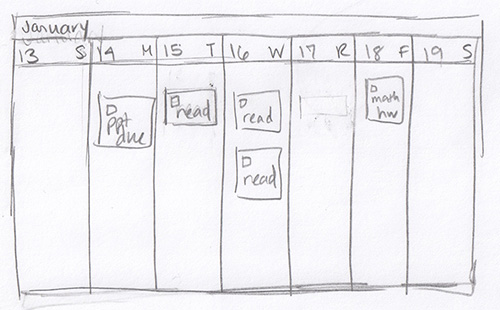 January
13 S 14 M 15 T 16 W 17 R 18 F 19 S
ppt
due
read
read
read
math
hw